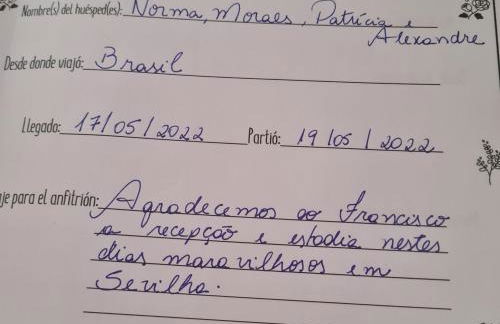 Nombre(s) del huésped(es): Norma, Moraes, Patrícia e
Alexandre
Desde donde viajó: Brasil
Llegada: 17/05/2022 Partió: 19/05/2022
je para el anfitrión: Agradecemos ao Francisco
a recepção e estadia nestes
dias maravilhosos em
Sevilha.